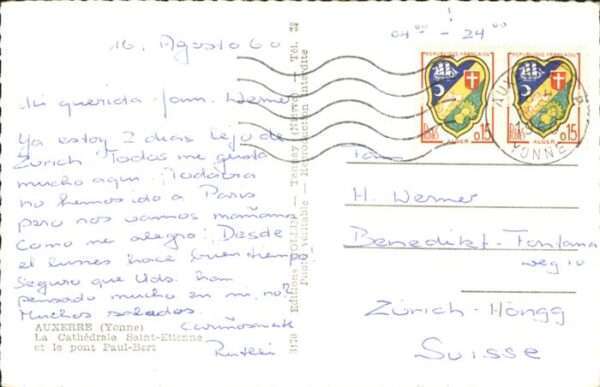 16. Agosto 60
Mi querida fam. Werner
Ya estoy 2 dias lejo de
Zürich. Todas me gusta
mucho aqui. Todavia
no hemos ido a Paris
pero nos vamos mañana
Como me alegro! Desde
el lunes hace buen tiempo!
Seguro que Uds. han
pensado mucho en mi, no?
Muchos saludos
AUXERRE (Yonne)
La Cathédrale Saint-Etienne
et le pont Paul-Bert
3170 Editions Tél. 38
Reproduction interdite
04 00 - 24 00
REPUBLIQUE FRANÇAISE
POSTES
0,15
ALGER
REPUBLIQUE FRANÇAISE
POSTES
0,15
ALGER
YONNE
H. Werner
Benedikt-Fontana
weg 10
Zürich-Höngg
Suisse